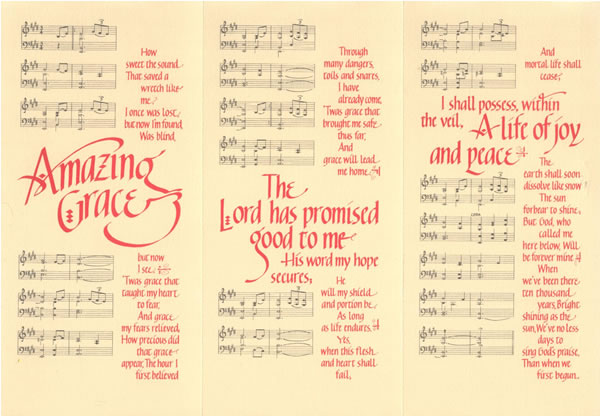 How
sweet the sound
That saved a
wretch like
me.
I once was lost,
but now I'm found,
Was blind,
Amazing
Grace
but now
I see.
'Twas grace that
taught my heart
to fear,
And grace
my fears relieved.
How precious did
that grace
appear, The hour I
first believed
Through
many dangers,
toils and snares,
I have
already come,
'Twas grace that
brought me safe
thus far,
And
grace will lead
me home.
The
Lord has promised
good to me
His word my hope
secures;
He
will my shield
and portion be,
As long
as life endures.
Yes,
when this flesh
and heart shall
fail,
And
mortal life shall
cease;
I shall possess, within
the veil, A life of joy
and peace
The
earth shall soon
dissolve like snow
The sun
forbear to shine;
But God, who
called me
here below, Will
be forever mine
When
we've been there
ten thousand
years, Bright
shining as the
sun, We've no less
days to
sing God's praise,
Than when we
first begun.